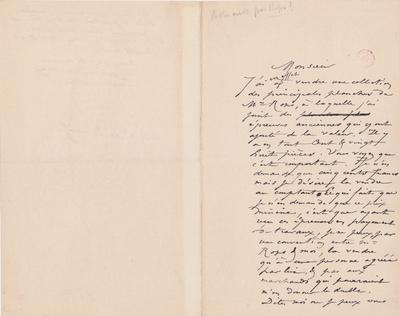 Monsieur
J'ai en effet à vendre une collection
des principales planches de
Mr Rops, à laquelle j'ai
joint des
épreuves anciennes qui ont
ajouté de la valeur. Il y
a en tout Cent & vingt
huit pièces. Vous voyez que
c'est important. Je n'en
demande que cinq cents francs
mais je désire la vendre
au comptant. Ce qui fait que
je n'en demande que ce prix
minime, c'est que ayant
eu ces épreuves en payement
de travaux, je ne peux, par
une convention entre Mr
Rops & moi, la vendre
qu'à une personne agréée
par lui, & pas aux
marchands qui pourraient
n'en donner le double.
Dites moi si je peux vous